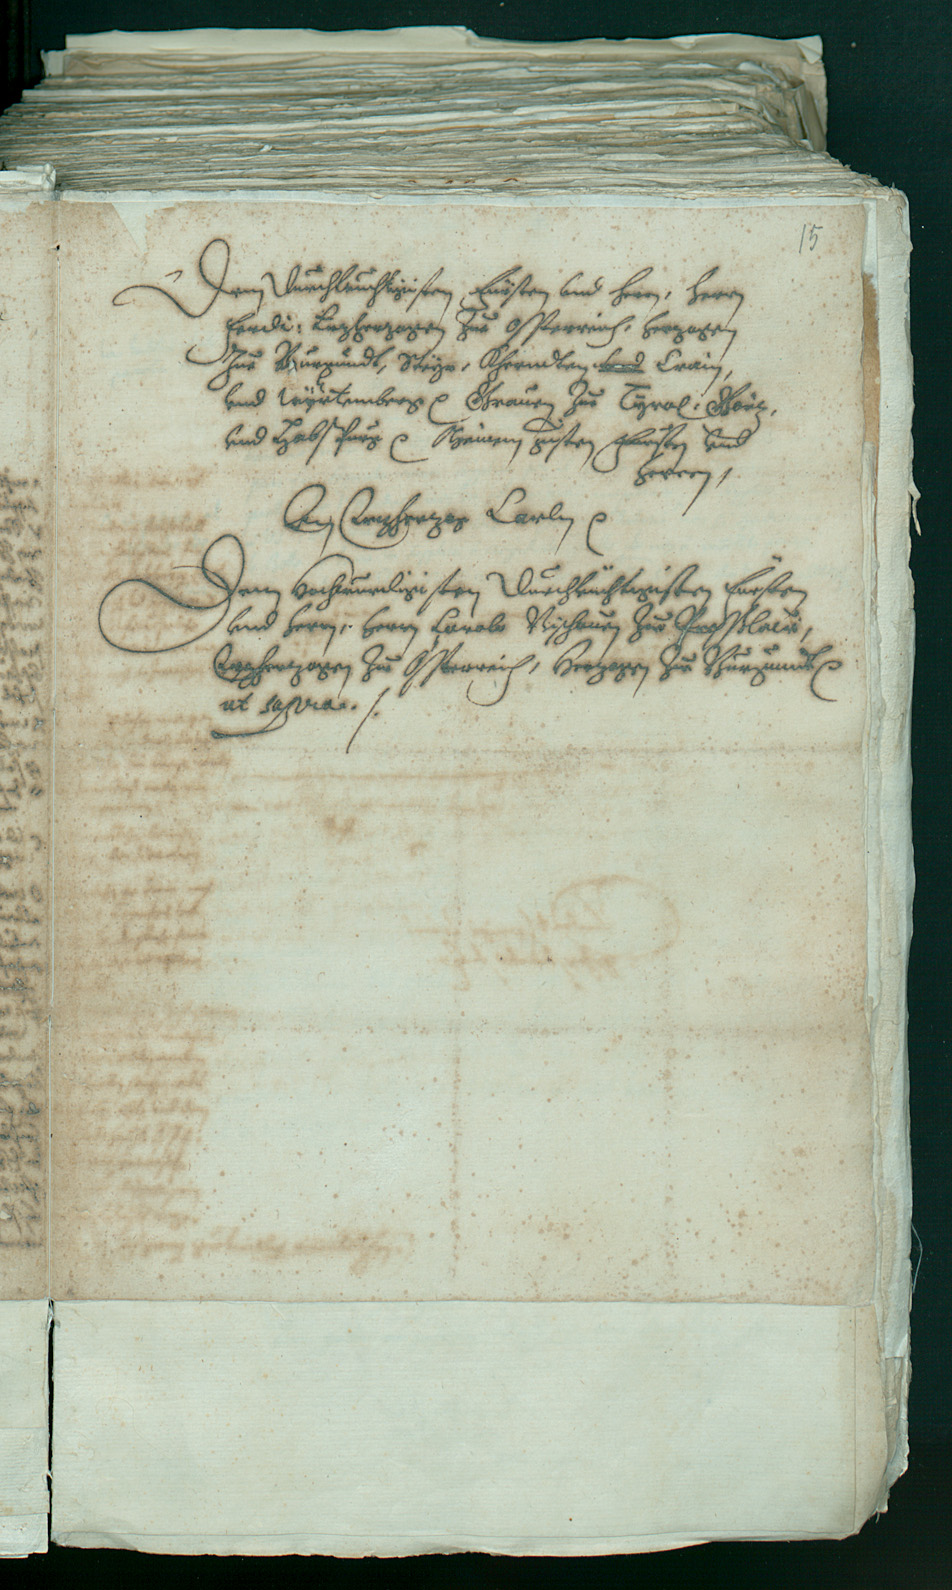 15
Dem Durchleuchtigisten Fürsten vnd herrn, herrn
Ferdi: Ertzhertzogen zue Ossterreich, hertzogen
zue Burgundt, Steyr, Kherndten vnd Crain,
vnd Würtemberg Grauen zue Tyrol, Görz,
vnd Habspurg Meinem gnsten Fürsten vnd
herren,
An Ertzhertzog Carln
Dem Hochwürdigisten Durchleüchtigisten Fürsten
vnd herrn, herrn Carolo Bischouen zue Presslaw,
Ertzhertzogen zue Ossterreich, Hertzogen zue Burgundt
ut supra.